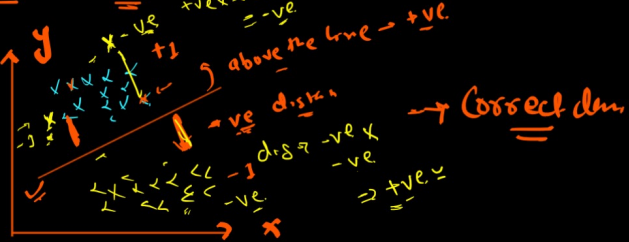 +ve x
= -ve
y
x -ve
+1
above the line → +ve
-ve distan
→ Correct
-1
dist → -ve x
-ve
⇒ +ve
-1
-ve
x